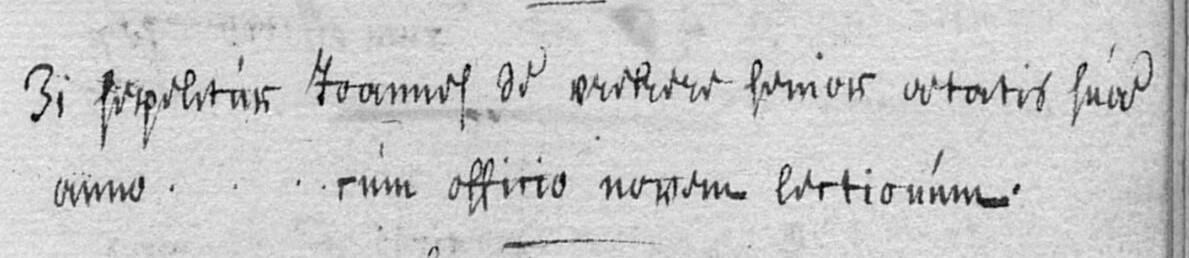 31 sepelitur Joannes De veckere senior aetatis suae
anno . . . . cum officio novem lectionum.